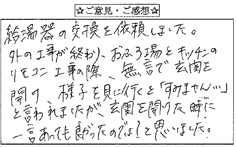 ☆ご意見・ご感想☆
給湯器の交換を依頼しました。
外の工事が終わり、おふろ場とキッチンの
リモコン工事の際、無言で玄関を
開け、様子を見に行くと「すみません…」
と言われましたが、玄関を開けた時に
一言あっても良かったのでは？と思いました。